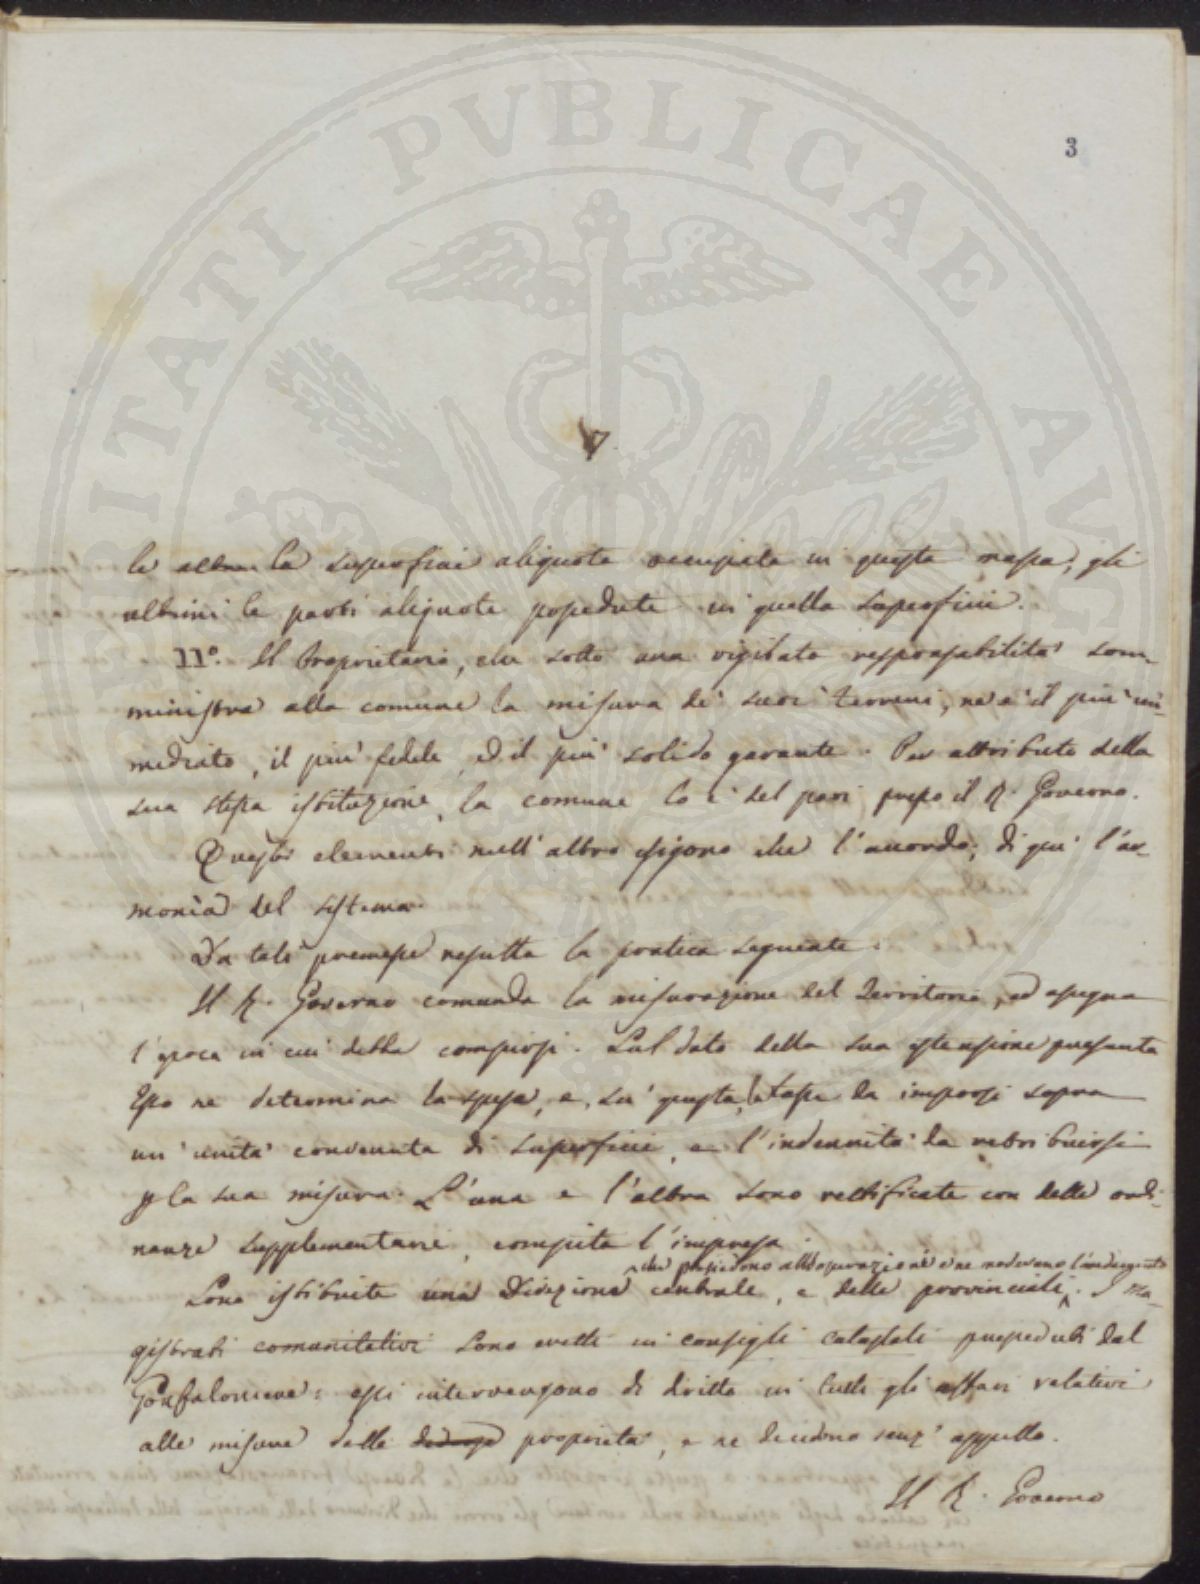 3
le altre la superficie aliquota occupata in questa massa; gli
ultimi le parti aliquote possedute in quella superficie.
11°. Il Proprietario, che sotto una vigilata responsabilità som-
ministra alla comune la misura de' suoi terreni, ne è il più im-
mediato, il più fedele, ed il più solido garante. Per attributo della
sua stessa istituzione, la comune lo è del pari presso il R. Governo.
Questi elementi null'altro esigono che l'accordo; di qui l'ar-
monia del sistema.
Da tali premesse resulta la pratica seguente.
Il R. Governo comanda la misurazione del Territorio, ed assegna
l'epoca in cui debba compiersi. Sul dato della sua estensione presunta
Esso ne determina la spesa, e, su questa, la tassa da imporsi sopra
un' unità convenuta di superficie, e l'indennità da retribuirsi
p la sua misura. L'una e l'altra sono rettificate con delle ordi-
nanze supplementarie, compita l'impresa.
che presiedono all'operazione e ne
Sono istituite una Direzione centrale, e delle provinciali. I ma-
gistrati comunitativi sono eretti in consigli catastali presieduti dal
Gonfaloniere: essi intervengono di diritto in tutti gli affari relativi
alle misure delle proprietà, e ne decidono senz' appello.
Il R. Governo
PVBLICAE